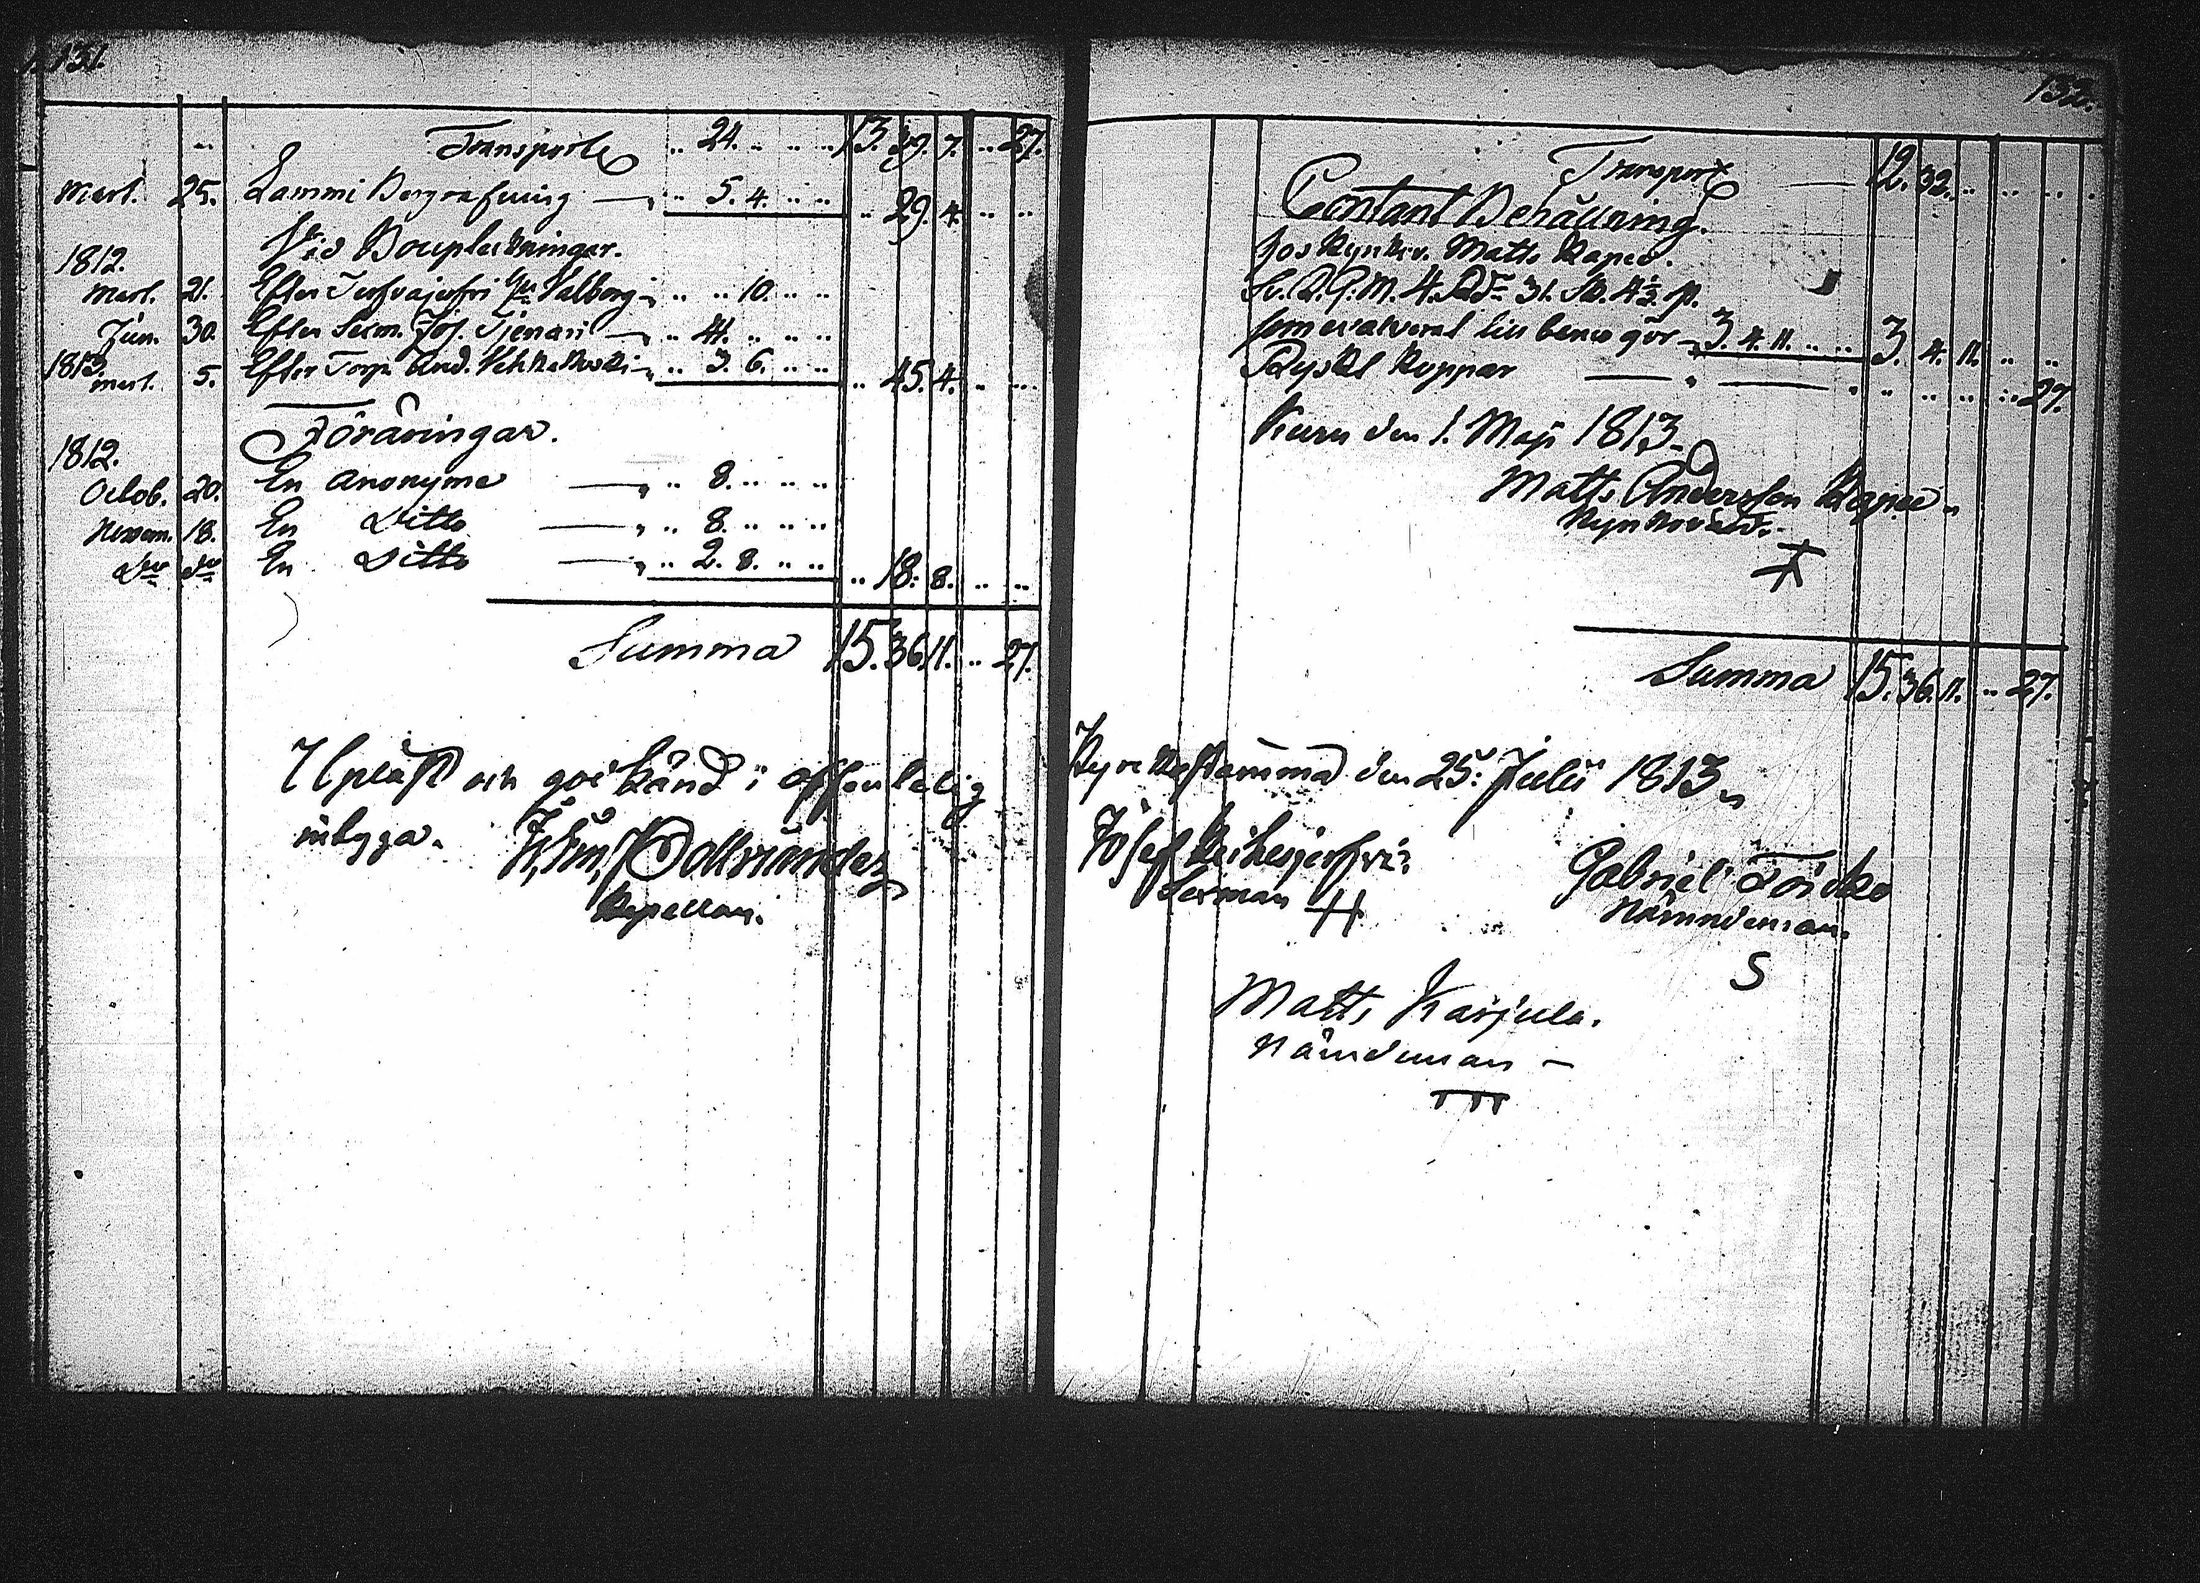 131.
Transport .. 24. .. .. .. 13. 39. 7. .. 27.
Mart. 25. Lammi Begrafning — .. 5. 4. .. .. .. 29. 4. .. ..
Vid Bouptekningar.
1812.
Mart. 21. Efter Valborg .. .. 10. .. ..
Jun. 30. Efter Sexm. Jos. Tjenari — .. 41. .. .. ..
1813.
Mart. 5. Efter Torp. And. — .. 3. 6. .. .. .. 45. 4. .. ..
Föräringar.
1812.
Octob. 20. En anonyme — .. 8. .. .. ..
Novem. 18. En Ditto — .. 8. .. .. ..
Do do En Ditto — .. 2. 8. .. .. .. 18. 8. .. ..
Summa 15. 36. 11. .. 27.
Upläst och godkänd i offentelig
intyga.
Kapellan.
132.
Transport — 12. 32. .. .. .. ..
Contant Behållning.
hos Kyrkov. Matts Kapee.
Sv. R. G. M. 4. Rd 31. Sk. 4 1/2 p.
som evalverat till banco gör 3. 4. 11. .. .. 3. 4. 11. .. ..
Ryskt Koppar — .. .. .. .. 27.
Kuru den 1. Maji 1813.
Matts Andersson Kapee
Kyrkovärd.
Summa 15. 36. 11. .. 27.
Kyrkostämma den 25: Julii 1813.
Josef
Sexman
Gabriel Toicko
Nämndeman.
S
Matts Karjula.
Nämdeman –